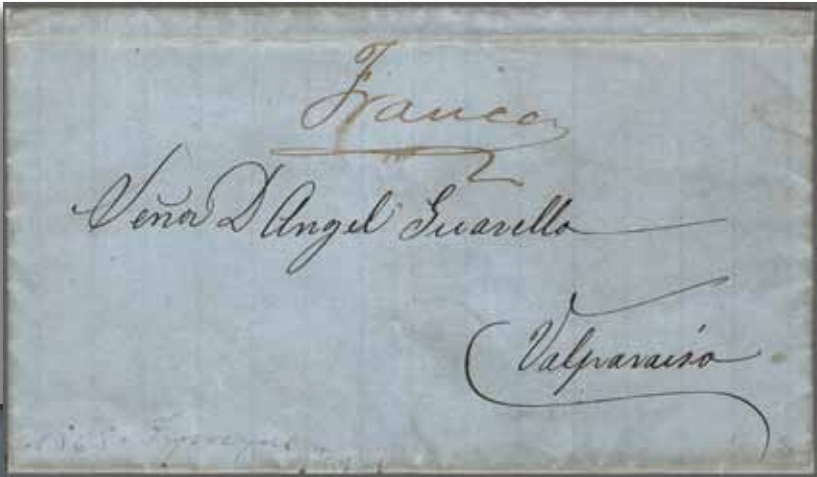 Franco
Señor D Angel Guarello
Valparaiso